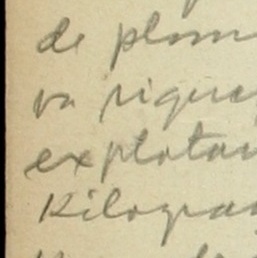 de plom
va rique
explotar
Kilogra